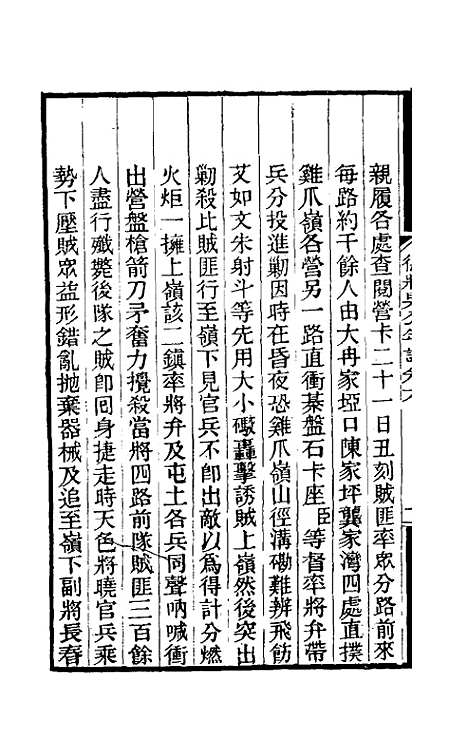 親履各處查閱營卡二十一日丑刻賊匪率眾分路前來
每路約千餘人由大冉家埡口陳家坪龔家灣四處直撲
雞爪嶺各營另一路直衝棊盤石卡座臣等督率將弁帶
兵分投進勦因時在昏夜恐雞爪嶺山徑溝磡難辨飛飭
艾如文朱射斗等先用大小礮轟擊誘賊上嶺然後突出
勦殺比賊匪行至嶺下見官兵不卽出敵以為得計分燃
火炬一擁上嶺該二鎮率將弁及屯土各兵同聲吶喊衝
出營盤槍箭刀矛奮力攪殺當將四路前隊賊匪三百餘
人盡行殲斃後隊之賊卽囘身捷走時天色將曉官兵乘
勢下壓賊眾益形錯亂拋棄器械及追至嶺下副將長春